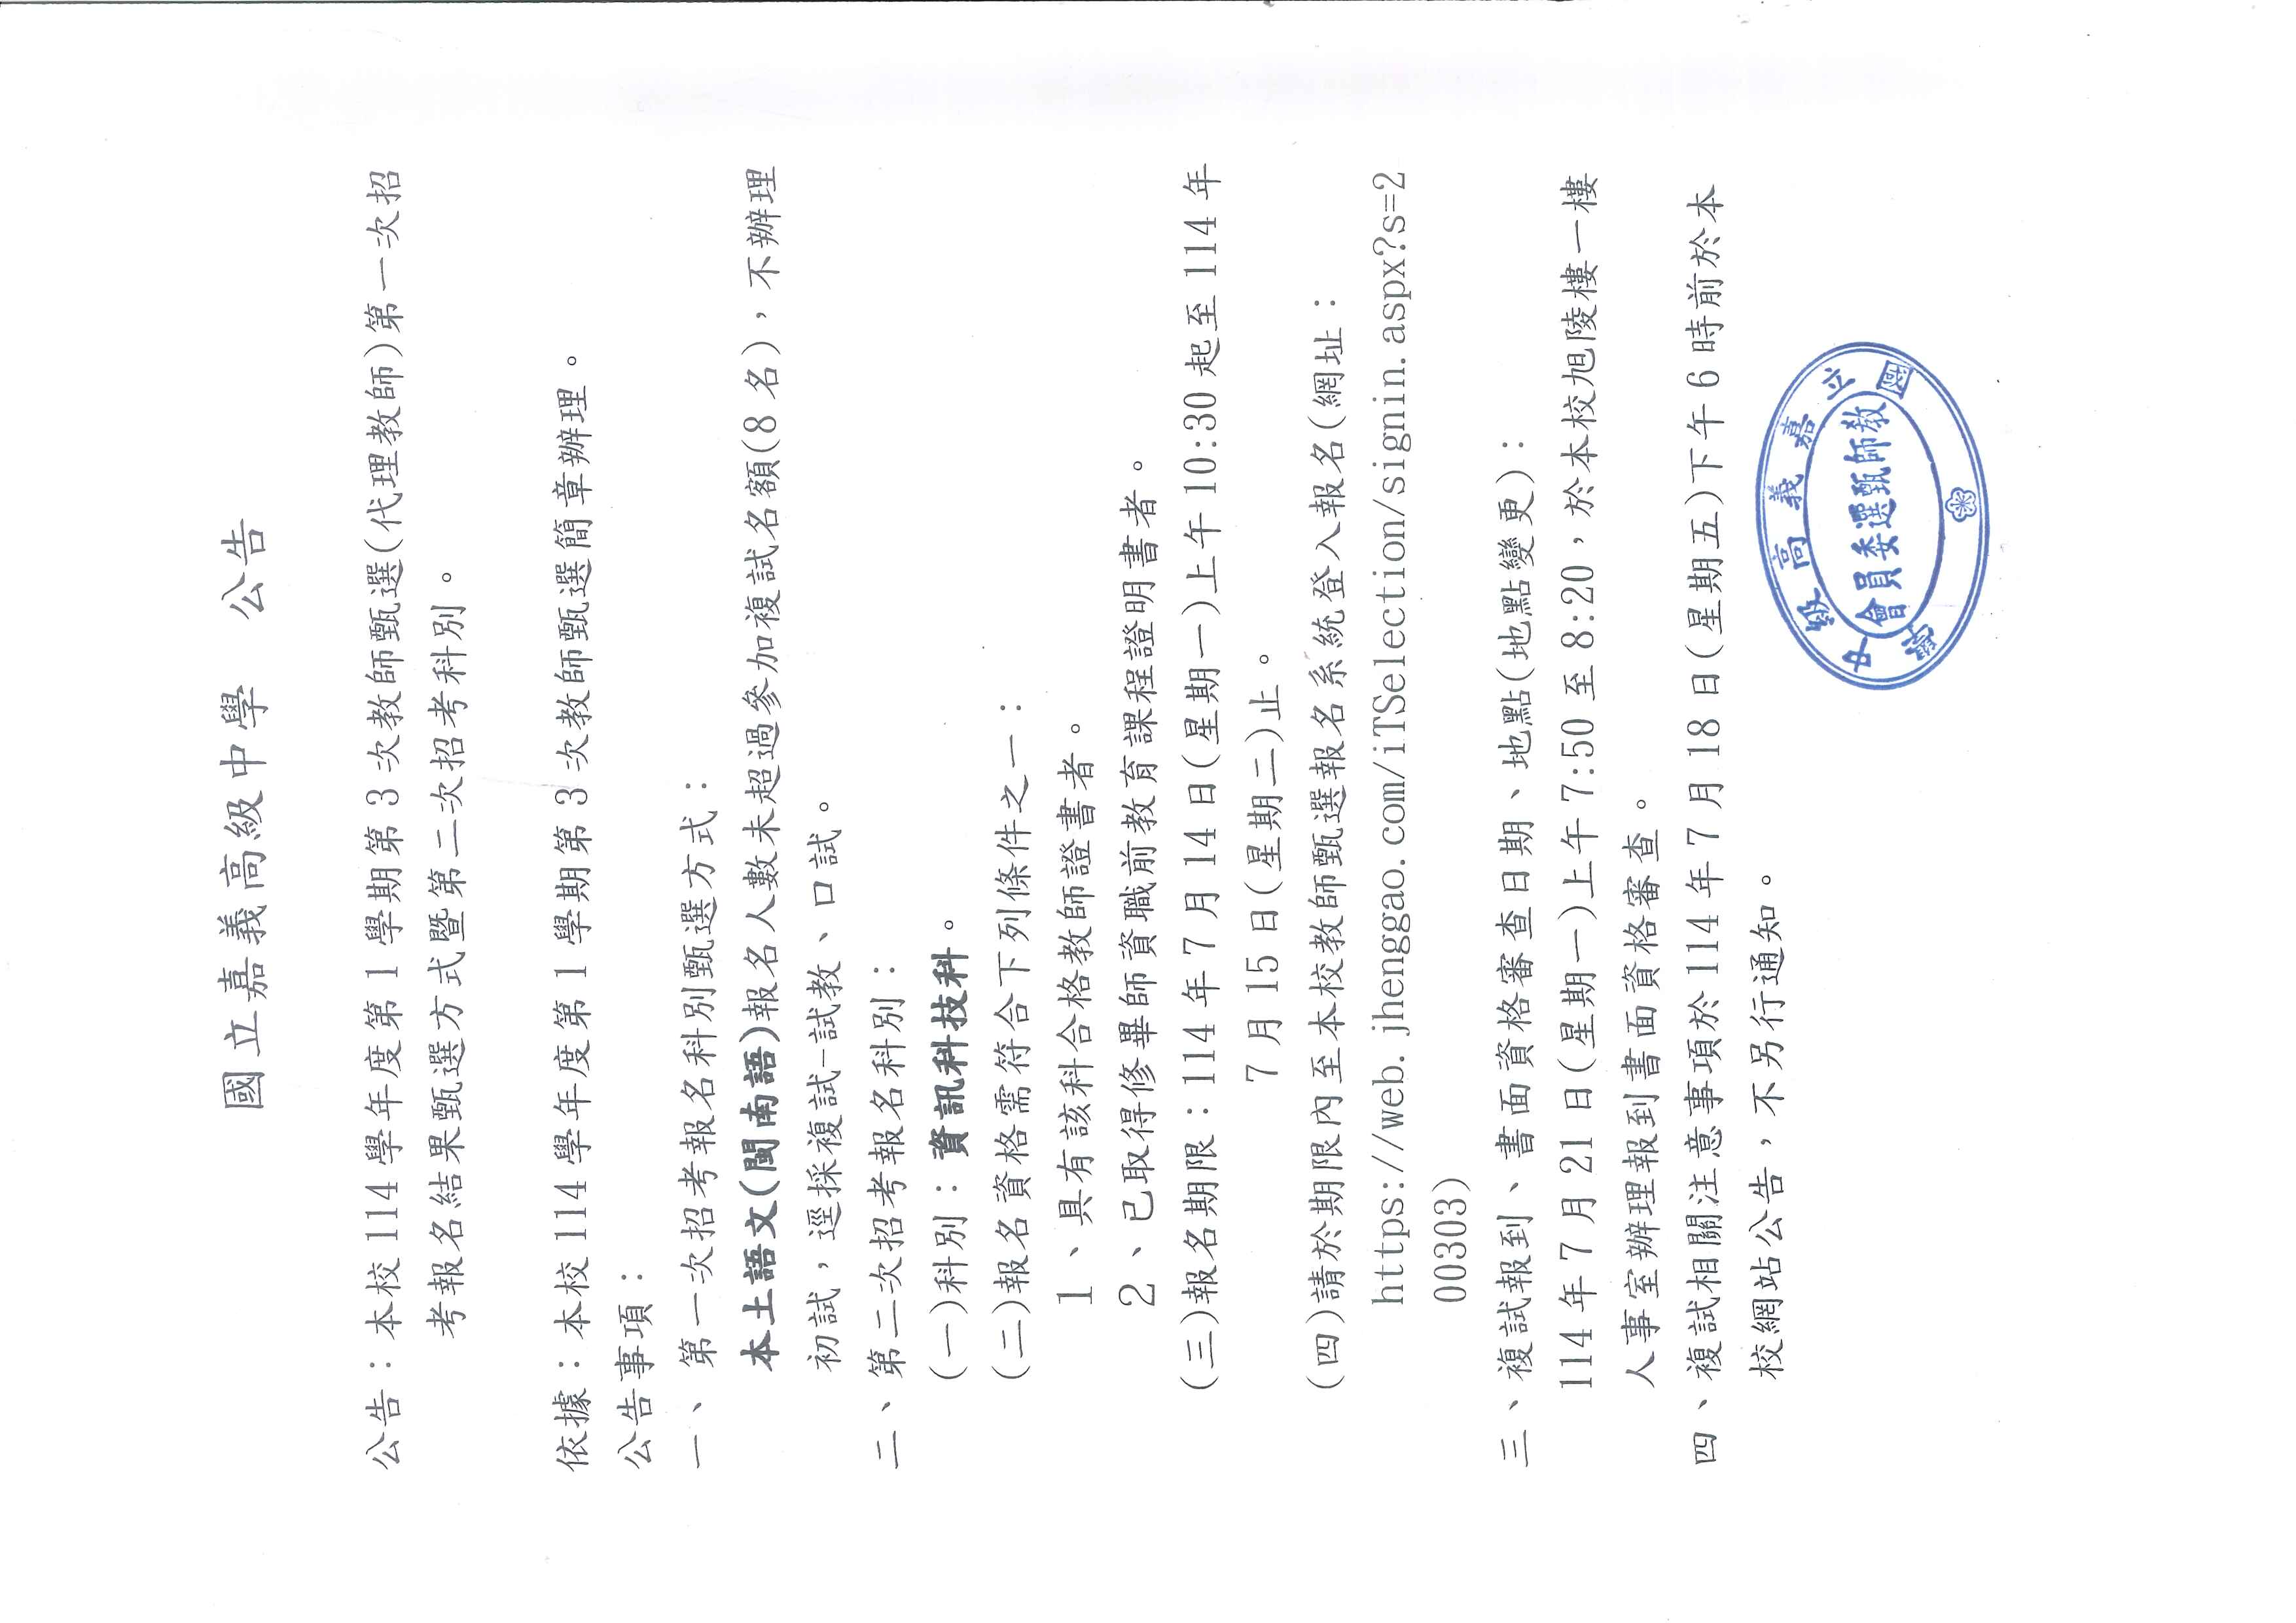 國立嘉義高級中學　公告
公告：本校114學年度第1學期第3次教師甄選(代理教師)第一次招
考報名結果甄選方式暨第二次招考科別。
依據：本校114學年度第1學期第3次教師甄選簡章辦理。
公告事項：
一、第一次招考報名科別甄選方式：
本土語文(閩南語)報名人數未超過參加複試名額(8名)，不辦理
初試，逕採複試-試教、口試。
二、第二次招考報名科別：
(一)科別：資訊科技科。
(二)報名資格需符合下列條件之一：
1、具有該科合格教師證書者。
2、已取得修畢師資職前教育課程證明書者。
(三)報名期限：114年7月14日(星期一)上午10:30起至114年
7月15日(星期二)止。
(四)請於期限內至本校教師甄選報名系統登入報名(網址：
https://web.jhenggao.com/iTSelection/signin.aspx?s=2
00303)
三、複試報到、書面資格審查日期、地點(地點變更)：
114年7月21日(星期一)上午7:50至8:20，於本校旭陵樓一樓
人事室辦理報到書面資格審查。
四、複試相關注意事項於114年7月18日(星期五)下午6時前於本
校網站公告，不另行通知。
國立嘉義高級中學
教師甄選委員會